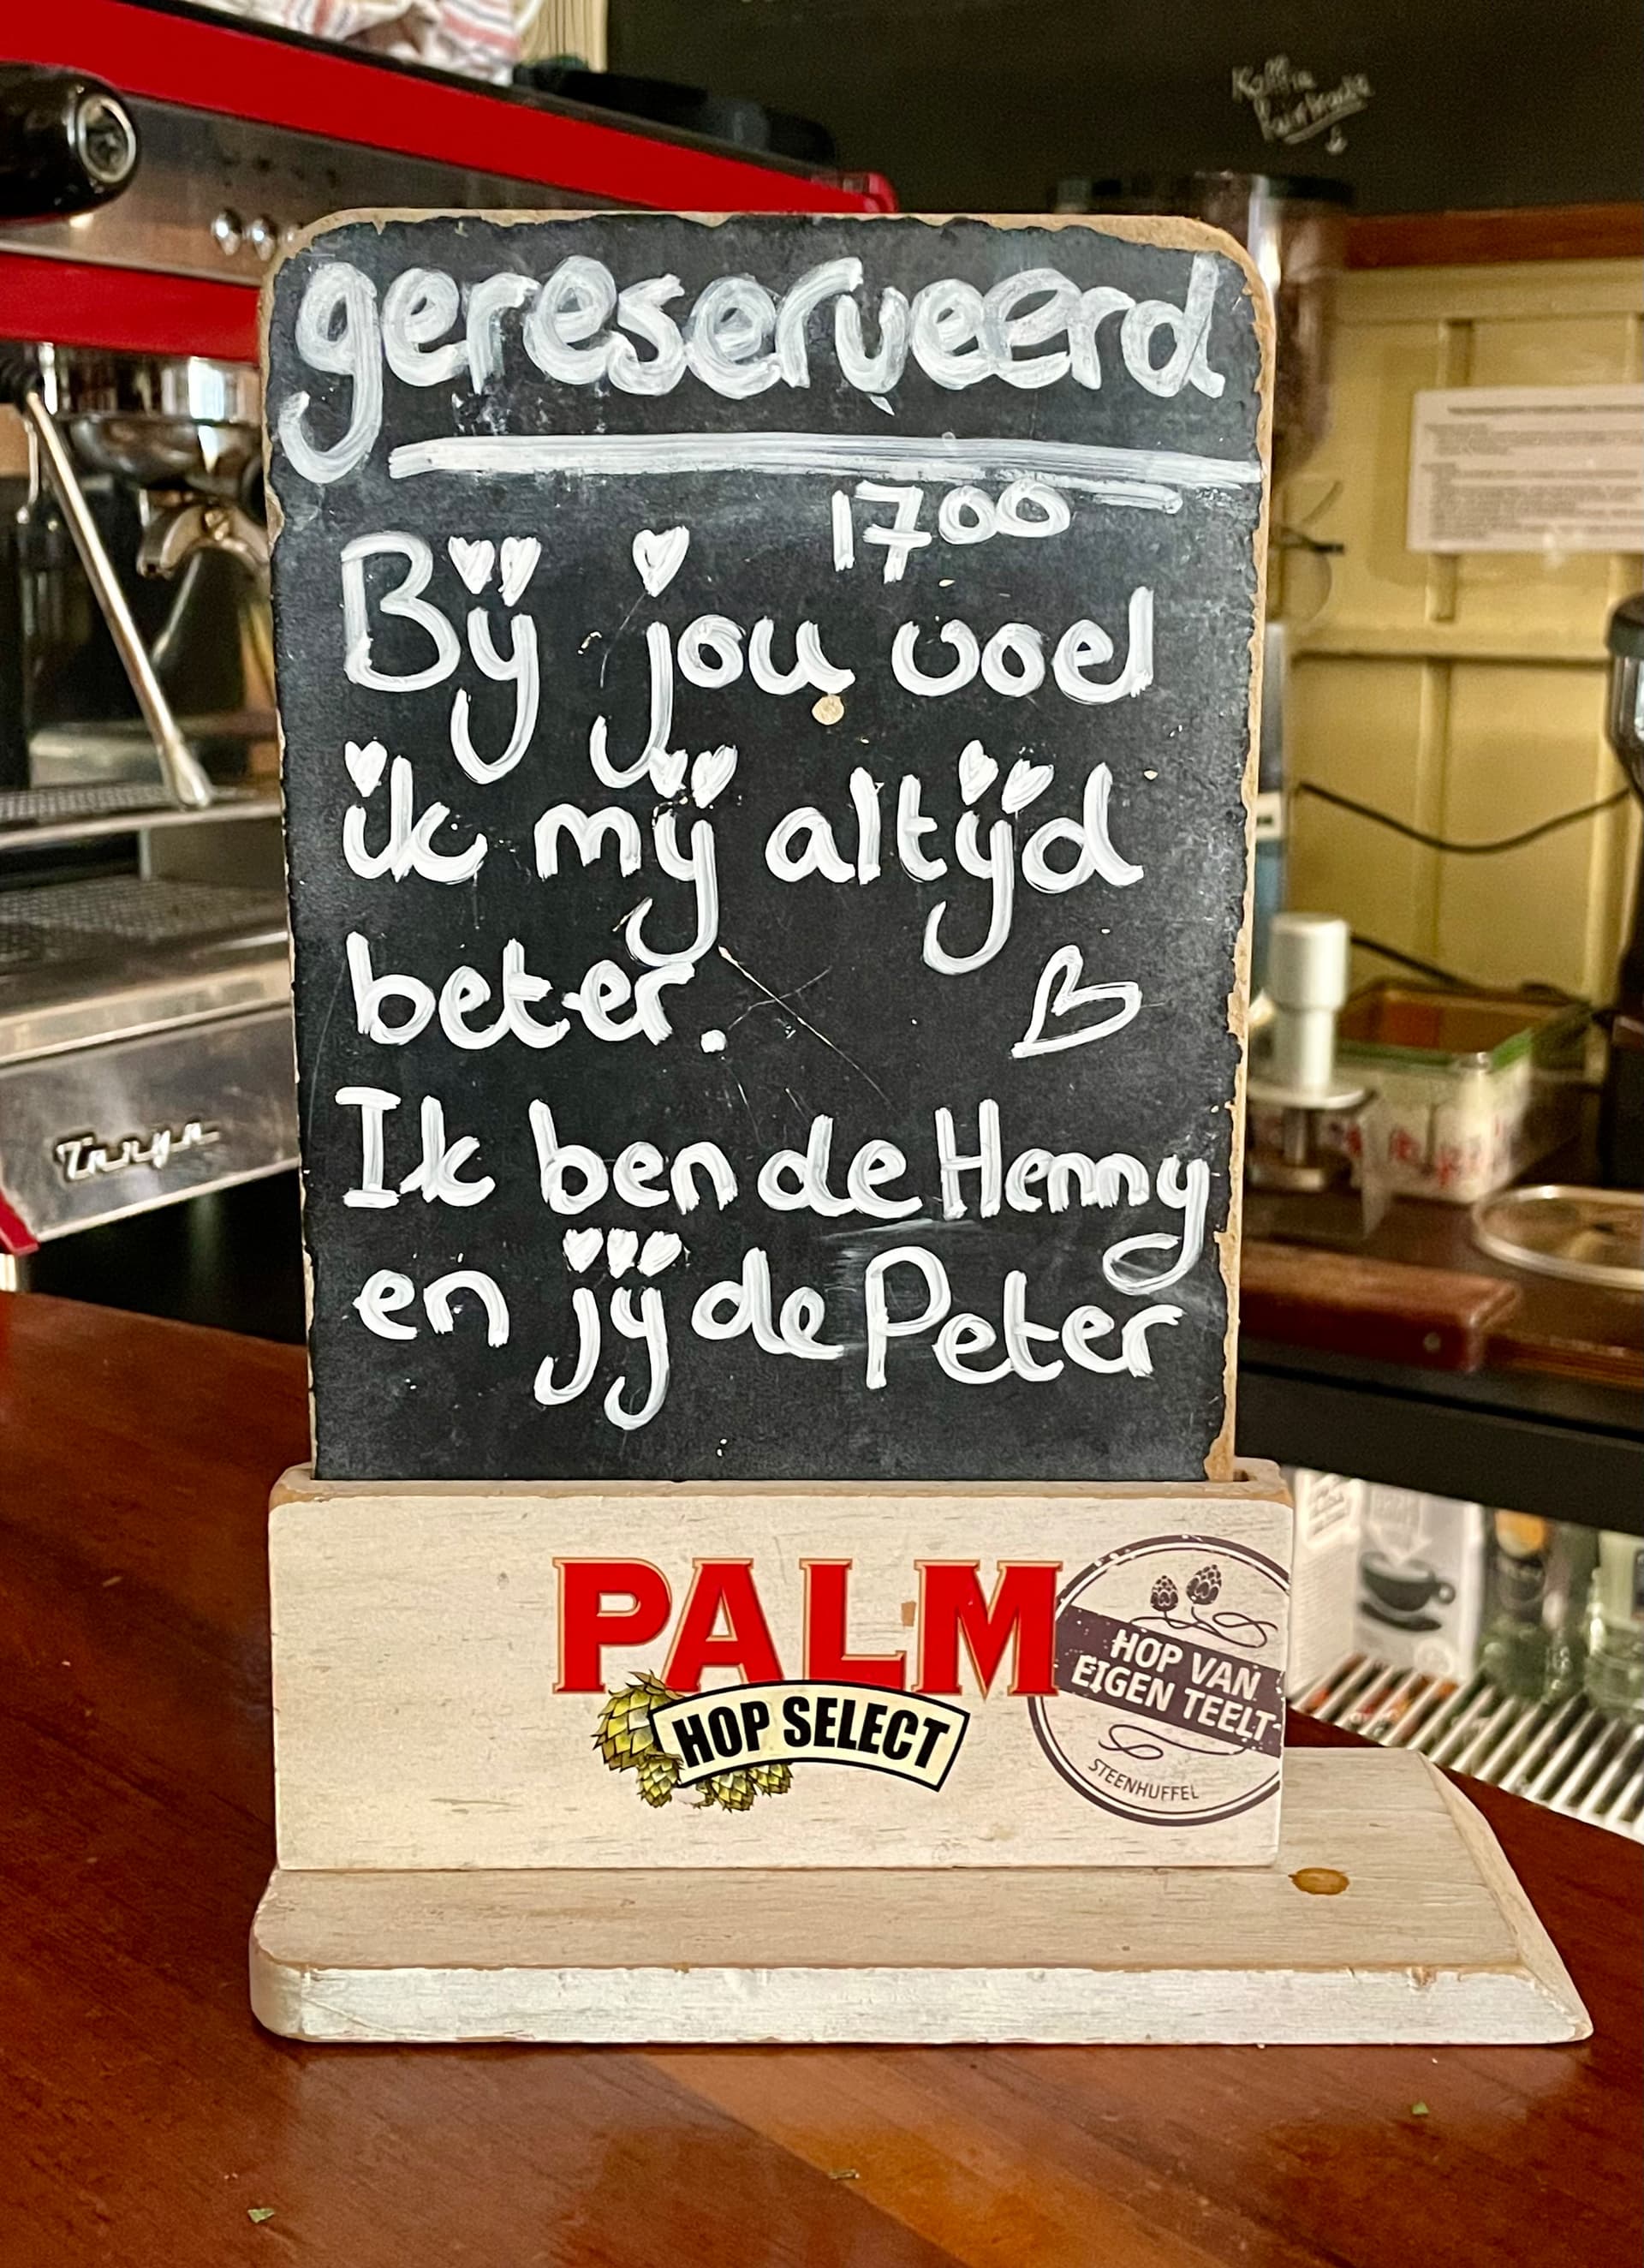 gereserveerd
1700
Bij jou voel
ik mij altijd
beter.
Ik ben de Henny
en jij de Peter
PALM
HOP SELECT
HOP VAN
EIGEN TEELT
STEENHUFFEL
Koffie
Tanya